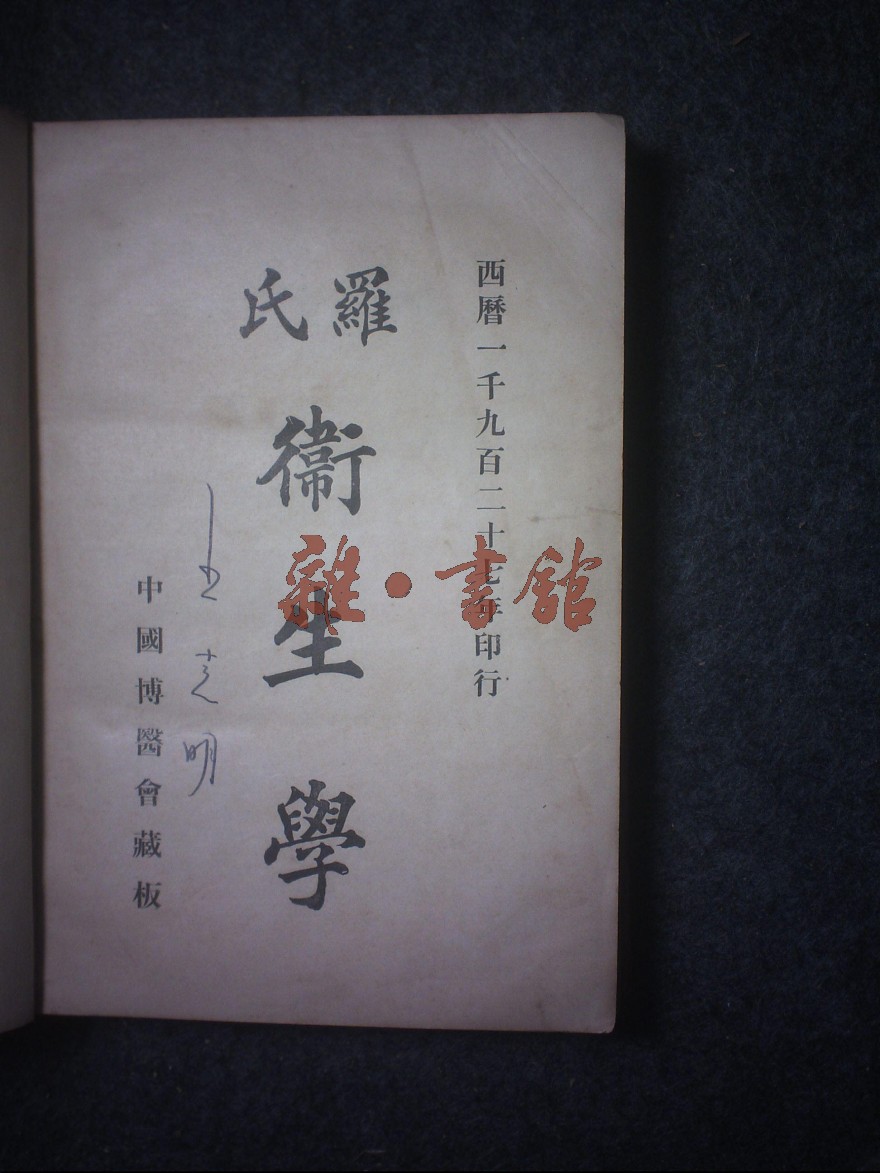 西曆一千九百二十七年印行
羅氏
衞生學
中國博醫會藏板
雜·書館